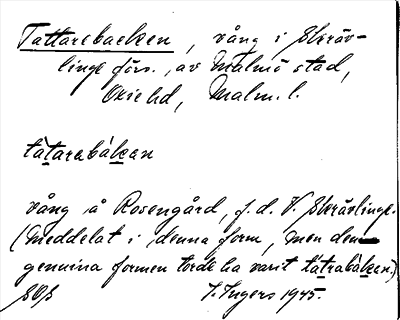 Tattarebacken, vång i Skräv-
linge förs., av Malmö stad,
Oxie hd, Malm. l.
tàtarabàkan
vång å Rosengård, f.d. V. Skrävlinge.
(Meddelat i denna form, men den
genuina formen torde ha varit tàtrabàkan.)
I. Ingers 1945.